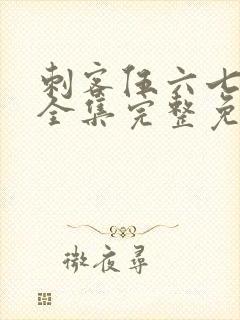 刺客伍六七
全集完整免
微夜尋